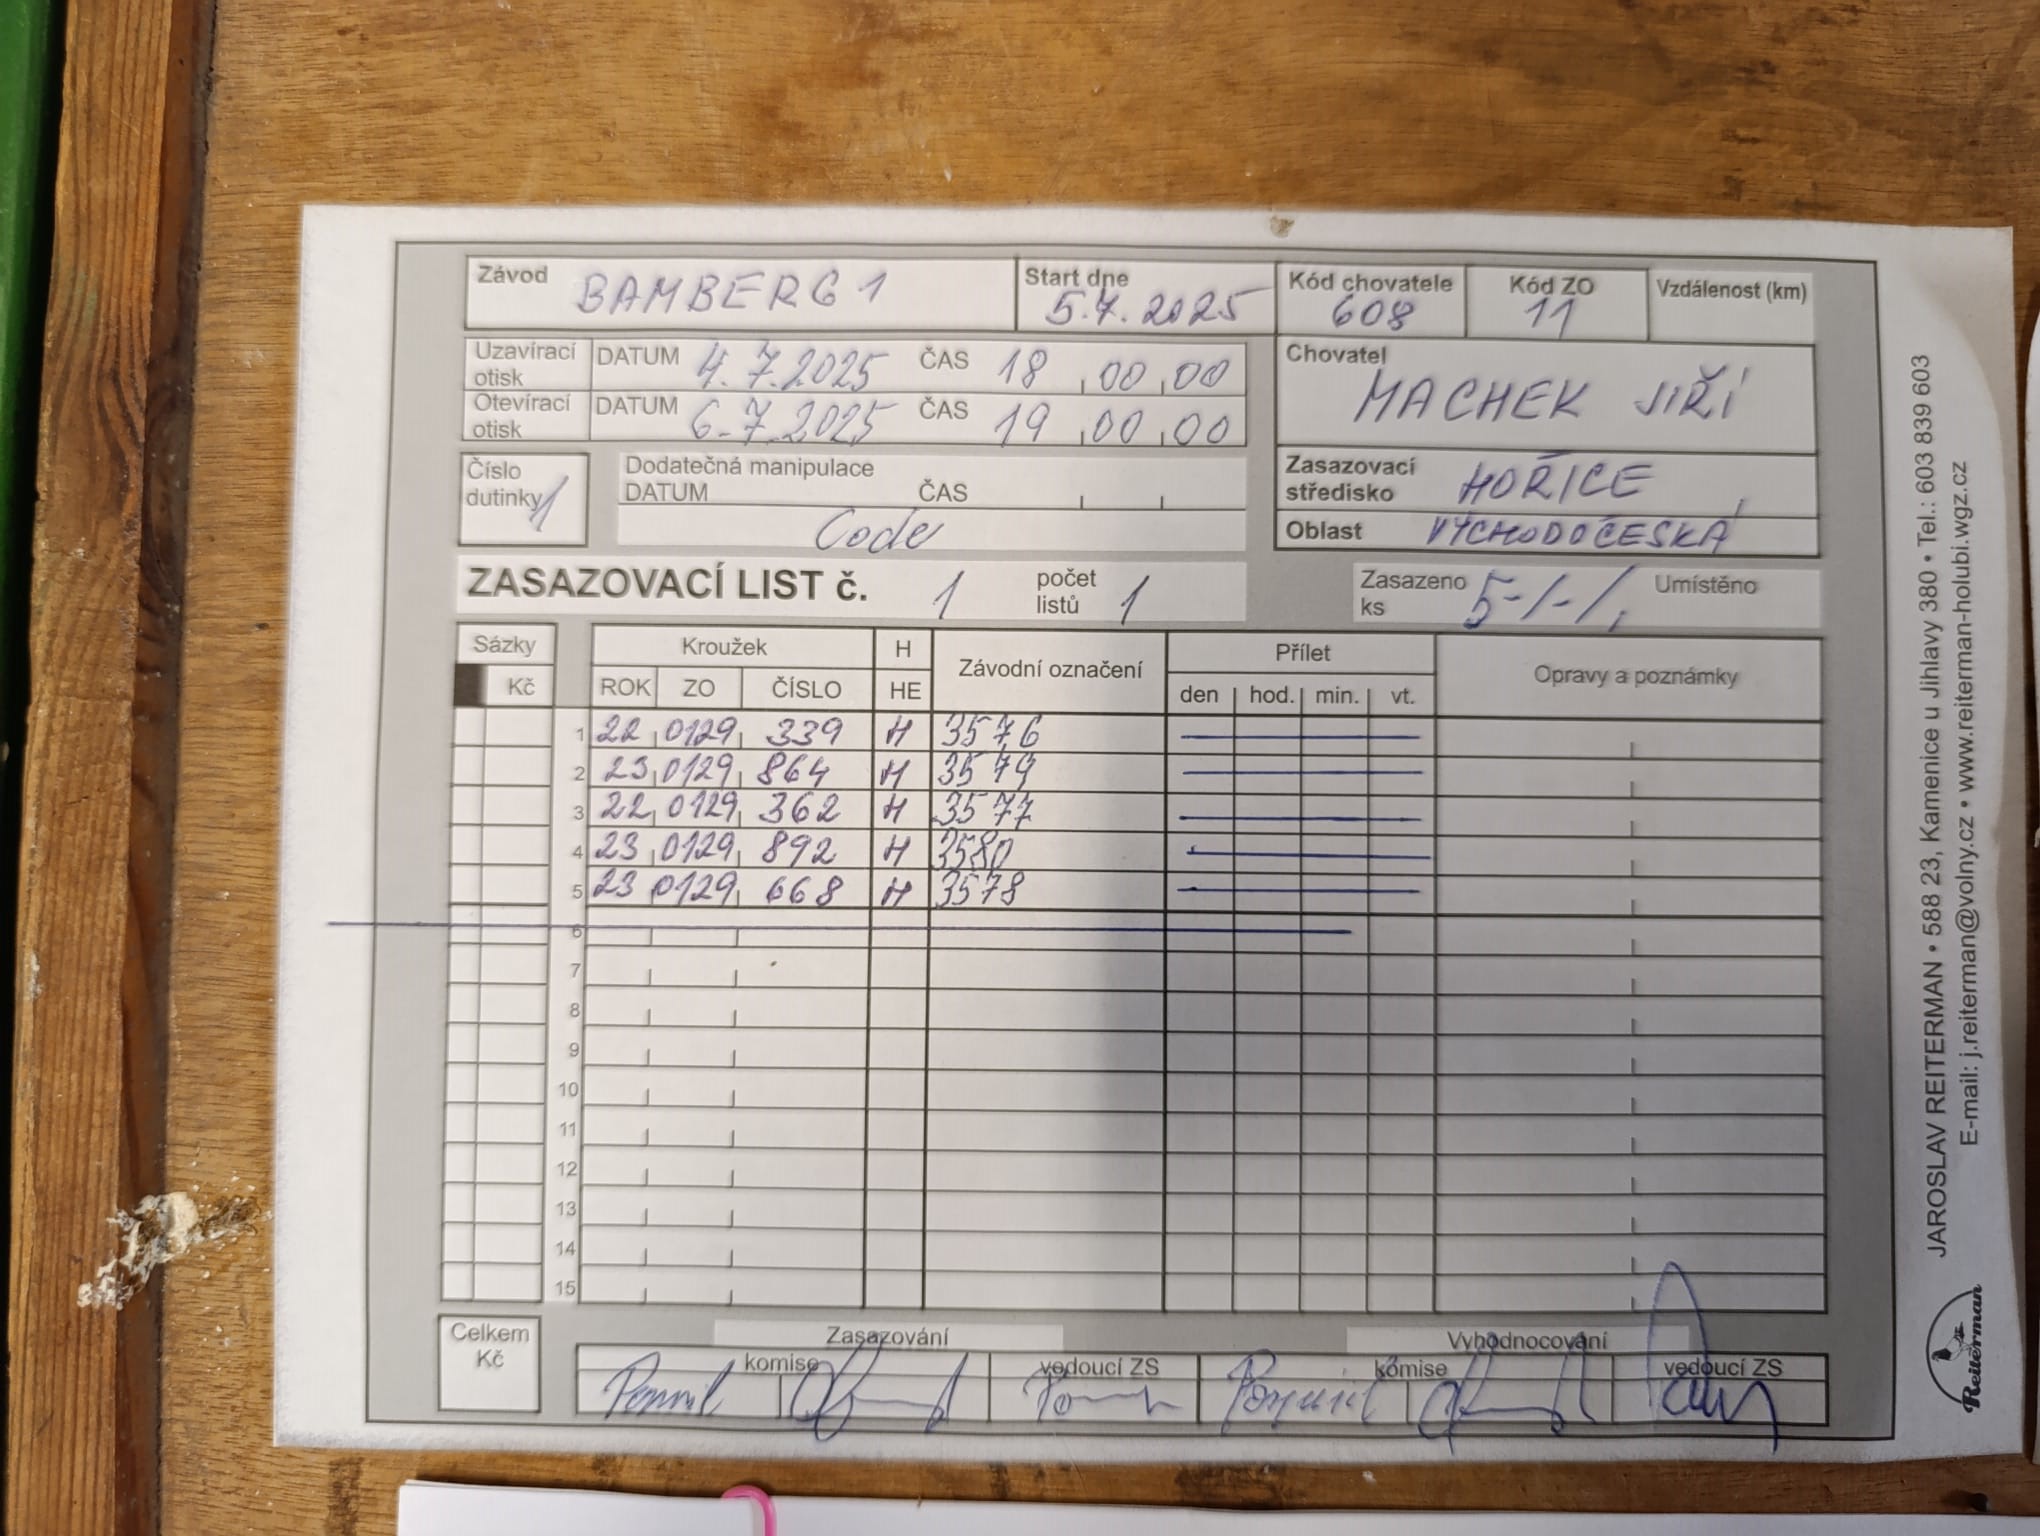 Závod BAMBERG 1 Start dne 5.7.2025 Kód chovatele 608 Kód ZO 11 Vzdálenost (km)
Uzavírací otisk DATUM 4.7.2025 ČAS 18,00,00
Otevírací otisk DATUM 6.7.2025 ČAS 19,00,00
Chovatel MACHEK JIŘÍ
Číslo dutinky 1
Dodatečná manipulace
DATUM ČAS
Code
Zasazovací středisko HOŘICE
Oblast VÝCHODOČESKÁ
ZASAZOVACÍ LIST č. 1 počet listů 1 Zasazeno ks 5-/-/, Umístěno
Sázky Kroužek H Závodní označení Přílet Opravy a poznámky
Kč ROK ZO ČÍSLO HE den hod. min. vt.
1 22 0129 339 H 3576
2 23 0129 864 H 3579
3 22 0129 362 H 3577
4 23 0129 892 H 3580
5 23 0129 668 H 3578
6
7
8
9
10
11
12
13
14
15
Celkem Kč
Zasazování Vyhodnocování
komise vedoucí ZS komise vedoucí ZS
JAROSLAV REITERMAN • 588 23, Kamenice u Jihlavy 380 • Tel.: 603 839 603
E-mail: j.reiterman@volny.cz • www.reiterman-holubi.wgz.cz
Reiterman